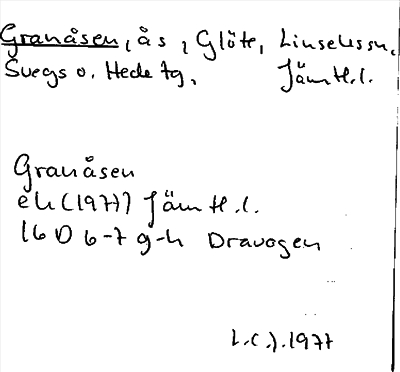 Granåsen, ås, Glöte, Linsellssn,
Svegs o. Hede tg, Jämtl.l.
Granåsen
ek(1977) Jämtl.l.
16 D 6-7 g-h Dravagen
L.C.J.1977